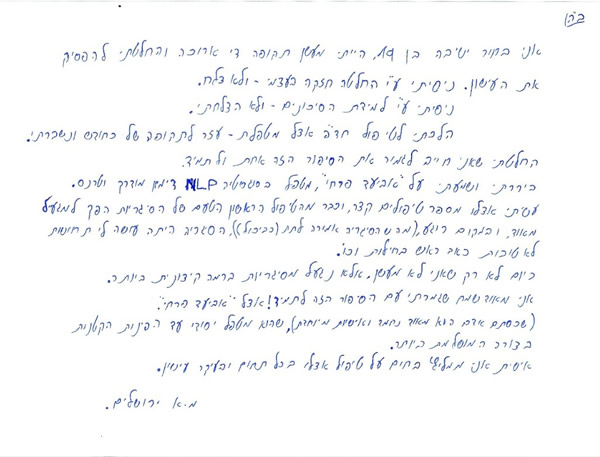 בס"ד
אני בחור ישיבה בן 19, הייתי מעשן תקופה די ארוכה והחלטתי להפסיק
את העישון. ניסיתי ע"י החלטה חזקה בעצמי - ולא צלח.
ניסיתי ע"י למידת הסיכונים - ולא הצלחתי.
הלכתי לטיפול חד"פ אצל מטפלת - עזר לתקופה של כחודש ונשברתי.
החלטתי שאני חייב לגמור את הסיפור הזה אחת ולתמיד.
ביררתי ושמעתי על "אביעד פרחי", מטפל בסוגסטיה NLP דימיון מודרך וטרנס.
עשיתי אצלו מספר טיפולים קצר, וכבר מהטיפול הראשון הטעם של הסיגריות הפך למגעיל
מאוד, ובמקום רוגע, (מה שהסיגריה אמורה לתת (כביכול)), הסגריה היתה עושה לי תחושות
לא טובות כאב ראש בחילות וכו'.
כיום לא רק שאני לא מעשן, אלא נגעל מסיגריות ברמה קיצונית ביותר.
אני מאוד שמח שגמרתי עם הסיפור הזה לתמיד! אצל "אביעד פרחי".
(שבסתם אדם הוא מאוד נחמד ואישיות מיוחדת), שהוא מטפל יסודי עד הפינות הקטנות
בצורה המושלמת ביותר.
אישית אני ממליץ בחום על טיפול אצלו בכל תחום ובעיקר עישון.
מ.א ירושלים.